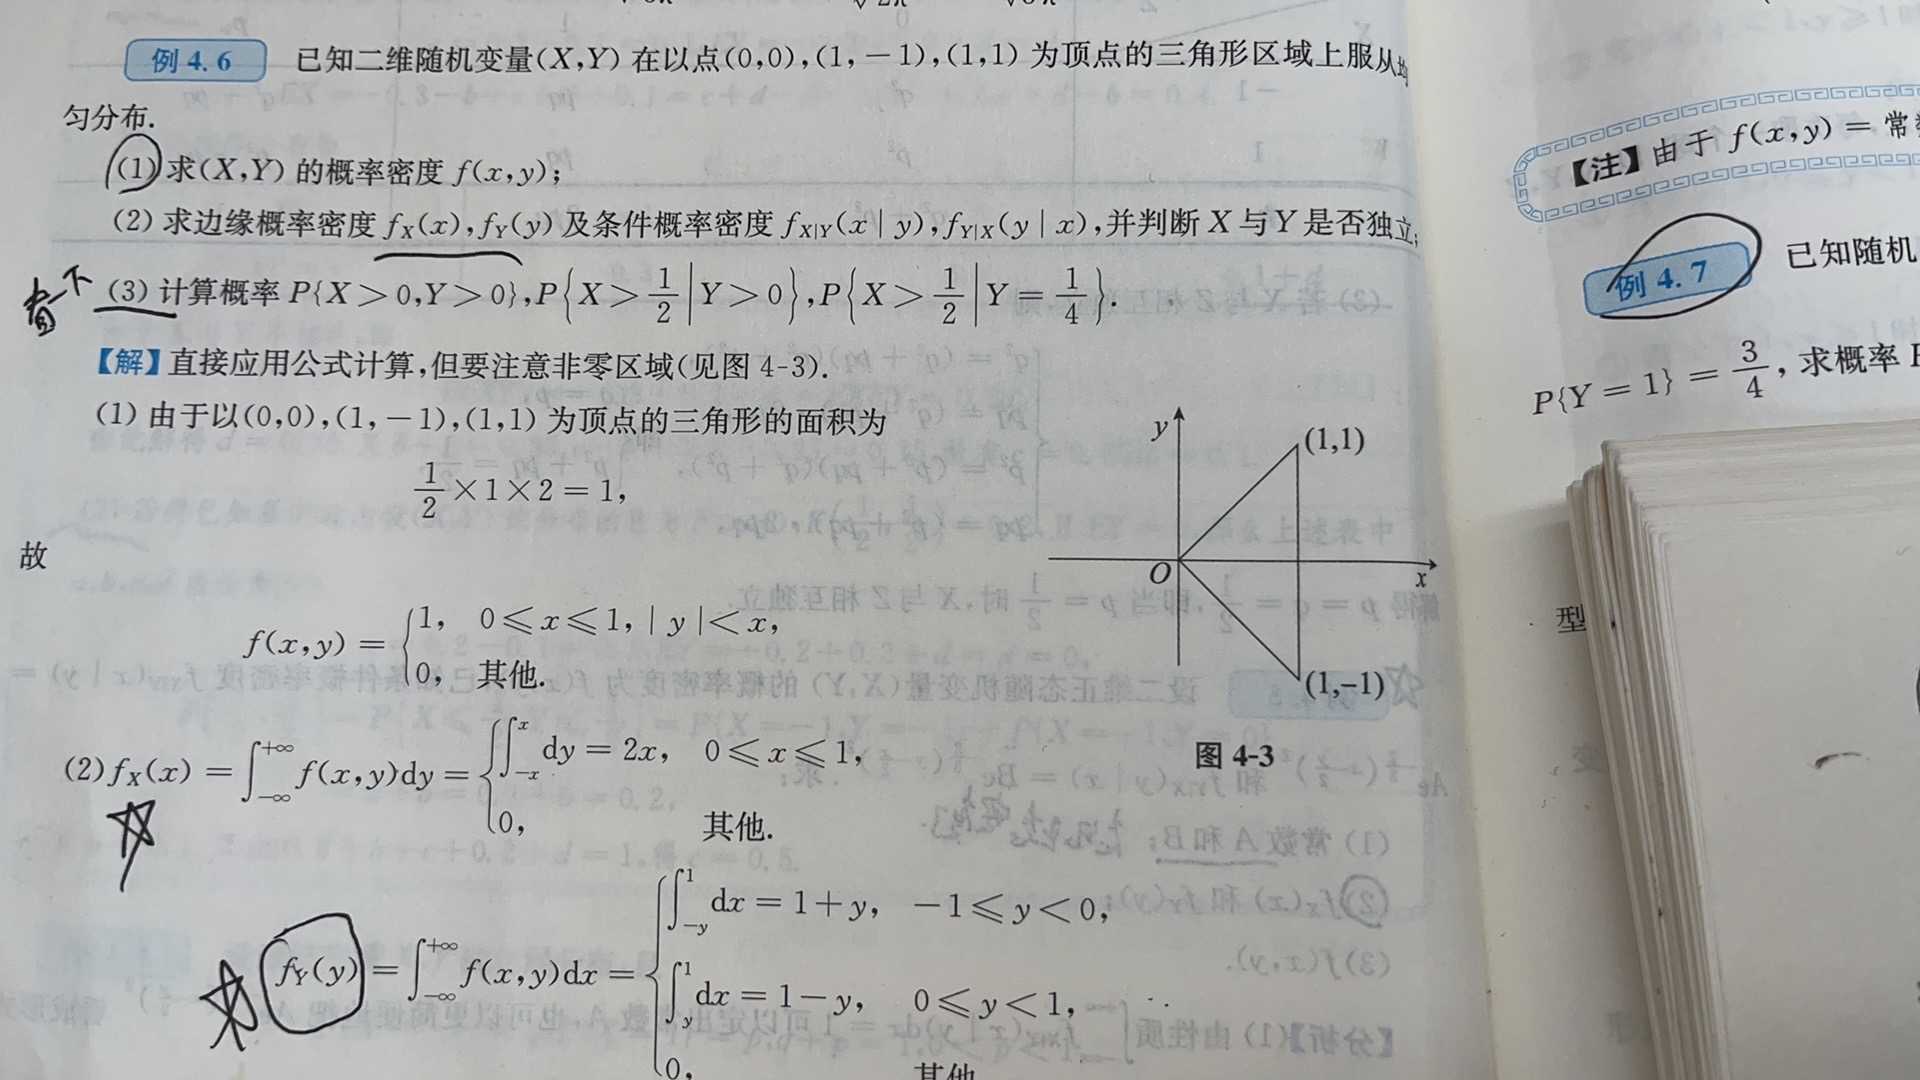 例 4.6 已知二维随机变量(X,Y) 在以点(0,0),(1,-1),(1,1) 为顶点的三角形区域上服从均
匀分布.
(1) 求(X,Y) 的概率密度 f(x,y);
(2) 求边缘概率密度 f_X(x),f_Y(y) 及条件概率密度 f_{X|Y}(x|y),f_{Y|X}(y|x),并判断 X 与 Y 是否独立;
看一下 (3) 计算概率 P{X>0,Y>0},P{X>1/2|Y>0},P{X>1/2|Y=1/4}.
【解】直接应用公式计算,但要注意非零区域(见图 4-3).
(1) 由于以(0,0),(1,-1),(1,1) 为顶点的三角形的面积为
1/2×1×2=1,
故
f(x,y)={1, 0≤x≤1,|y|<x,
0, 其他.
(2) f_X(x)=∫_{-∞}^{+∞}f(x,y)dy={∫_{-x}^{x}dy=2x, 0≤x≤1,
0, 其他.
f_Y(y)=∫_{-∞}^{+∞}f(x,y)dx={∫_{-y}^{1}dx=1+y, -1≤y<0,
∫_{y}^{1}dx=1-y, 0≤y<1,
0, 其他
y
(1,1)
O
x
(1,-1)
图 4-3
【注】由于 f(x,y)=常
例 4.7 已知随机
P{Y=1}=3/4,求概率
型